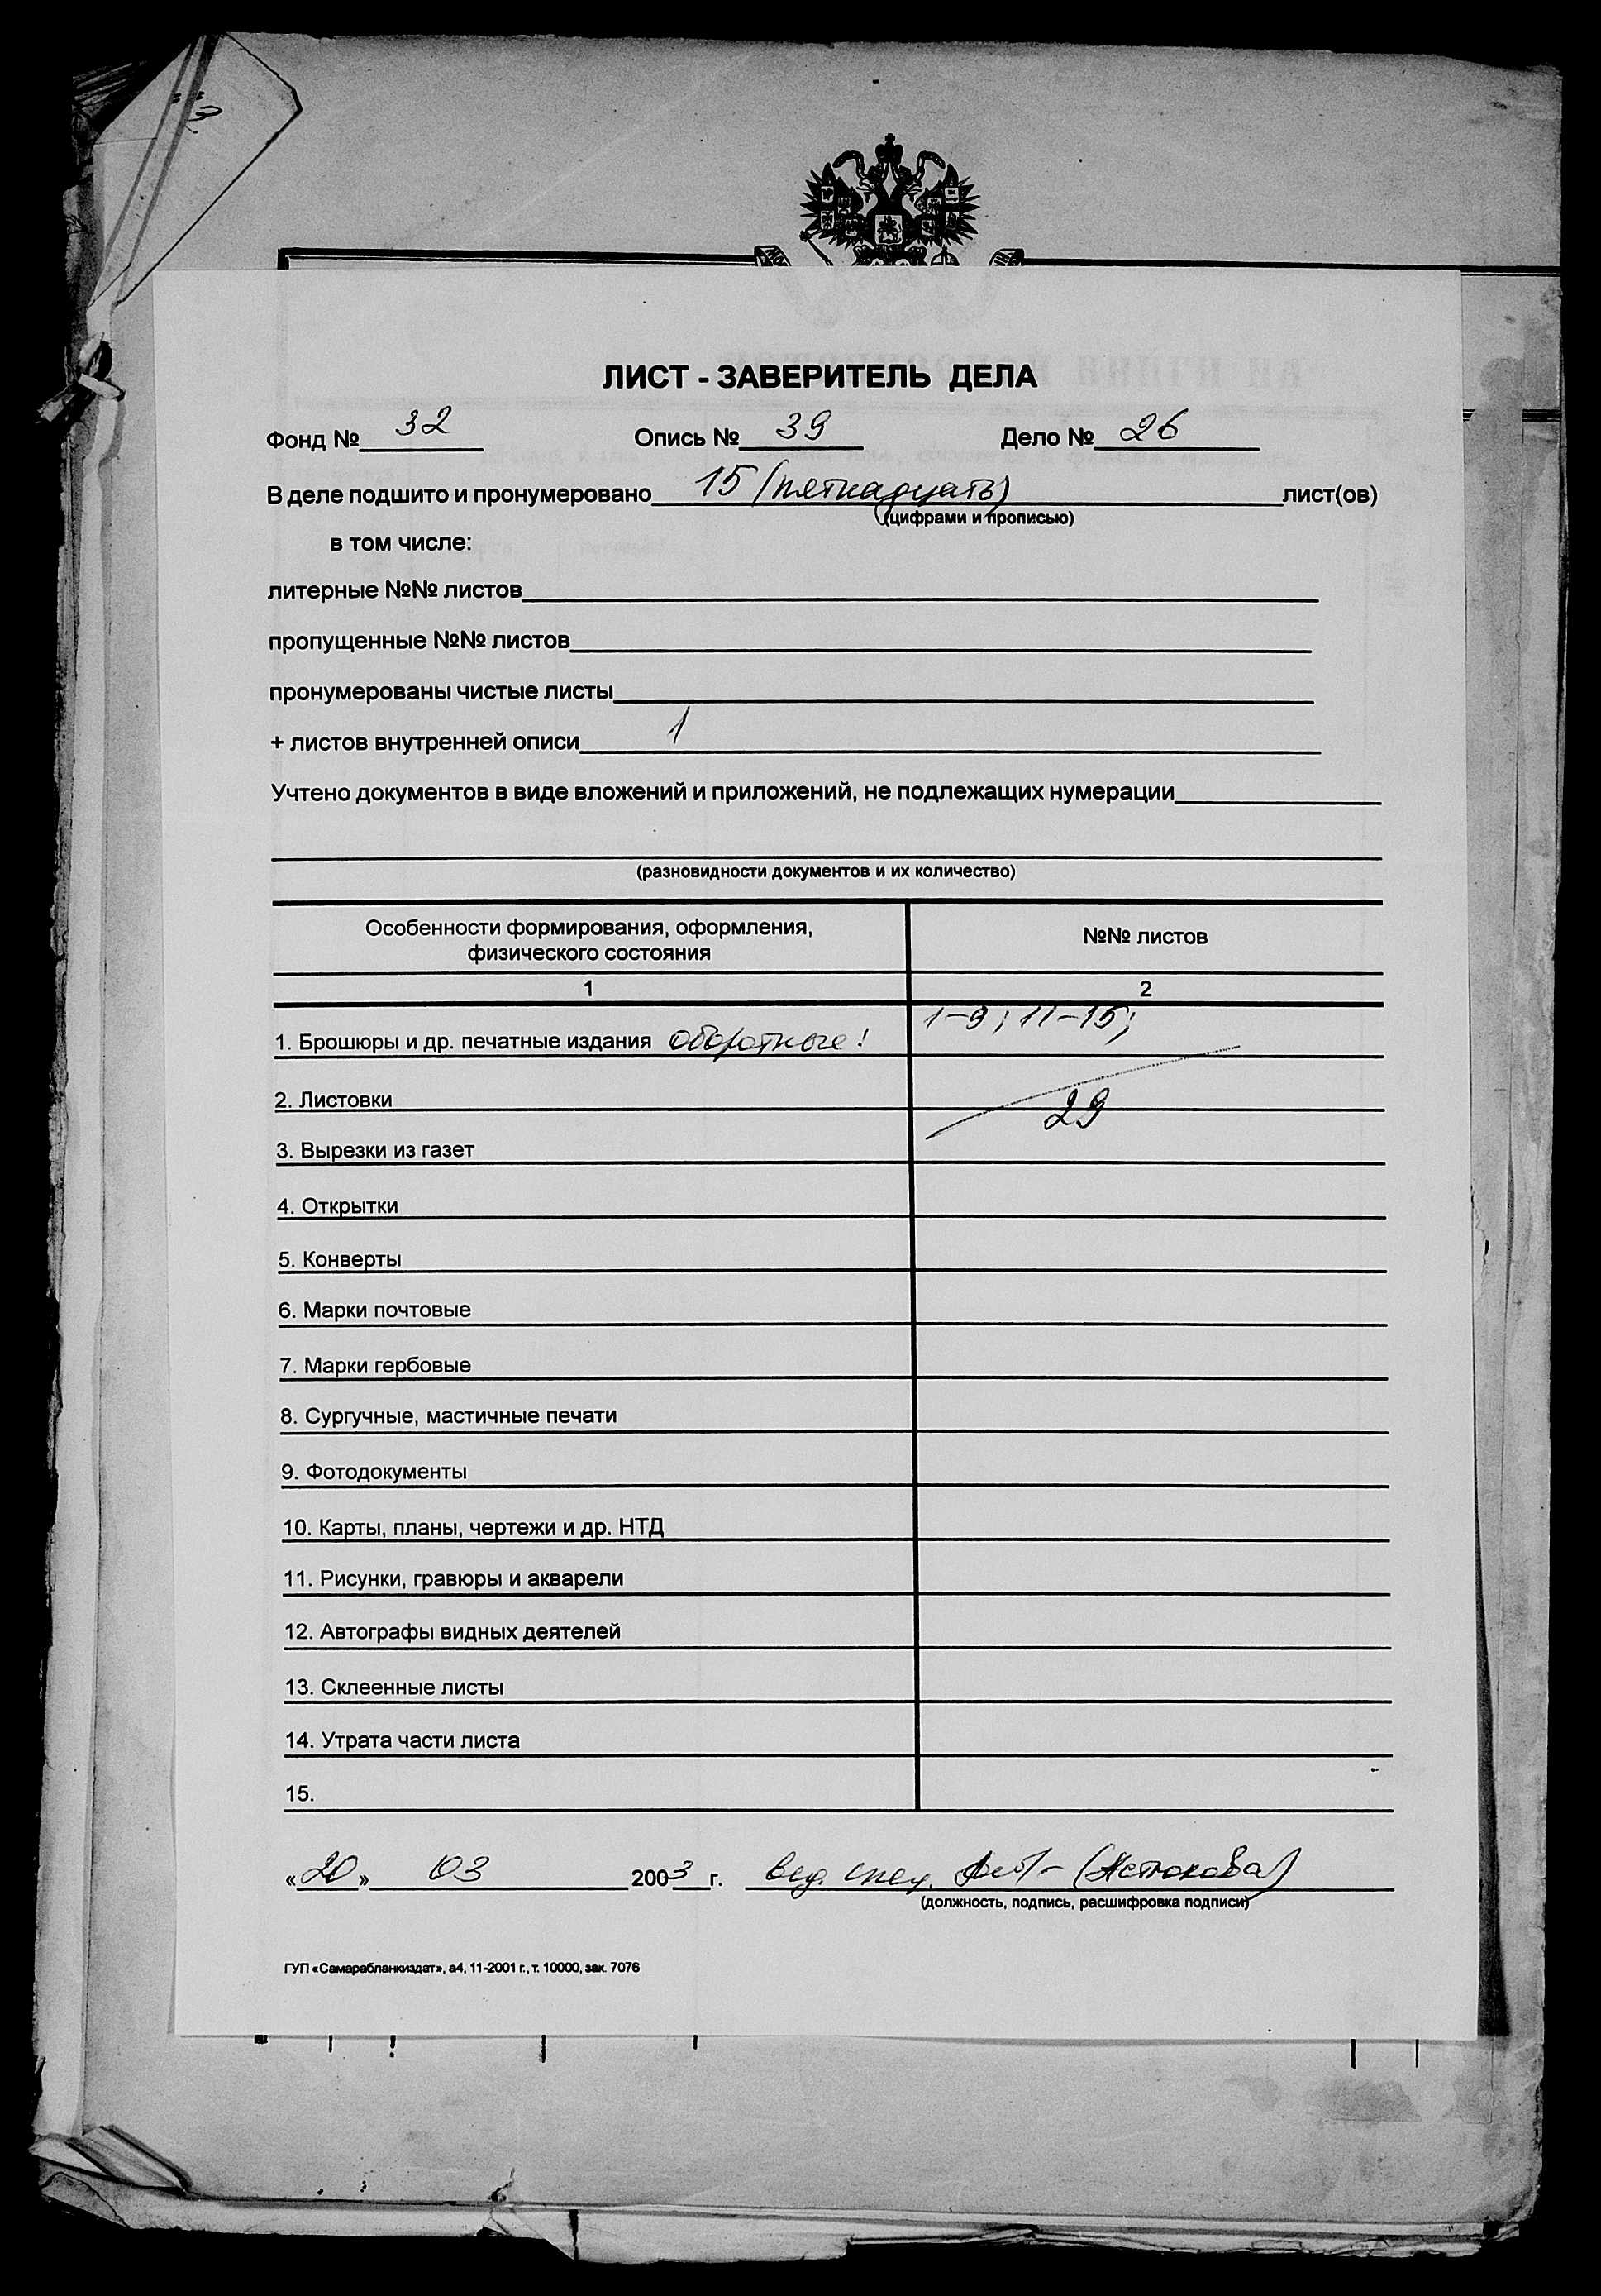 ЛИСТ - ЗАВЕРИТЕЛЬ ДЕЛА
Фонд № 32 Опись № 39 Дело № 26
В деле подшито и пронумеровано 15 (пятнадцать) лист(ов)
(цифрами и прописью)
в том числе:
литерные №№ листов
пропущенные №№ листов
пронумерованы чистые листы
+ листов внутренней описи 1
Учтено документов в виде вложений и приложений, не подлежащих нумерации
(разновидности документов и их количество)
Особенности формирования, оформления, №№ листов
физического состояния
1 2
1. Брошюры и др. печатные издания оборотные! 1-9; 11-15;
2. Листовки 29
3. Вырезки из газет
4. Открытки
5. Конверты
6. Марки почтовые
7. Марки гербовые
8. Сургучные, мастичные печати
9. Фотодокументы
10. Карты, планы, чертежи и др. НТД
11. Рисунки, гравюры и акварели
12. Автографы видных деятелей
13. Склеенные листы
14. Утрата части листа
15.
«20» 03 2003 г. вед. спец.
(должность, подпись, расшифровка подписи)
ГУП «Самарабланкиздат», а4, 11-2001 г., т. 10000, зак. 7076